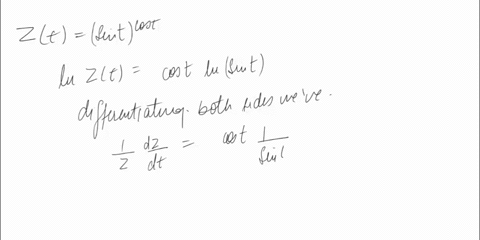 Z(t) = (sint)^cost
ln Z(t) = cost ln(sint)
differentiating both sides we've.
1/Z dZ/dt = cost 1/sint